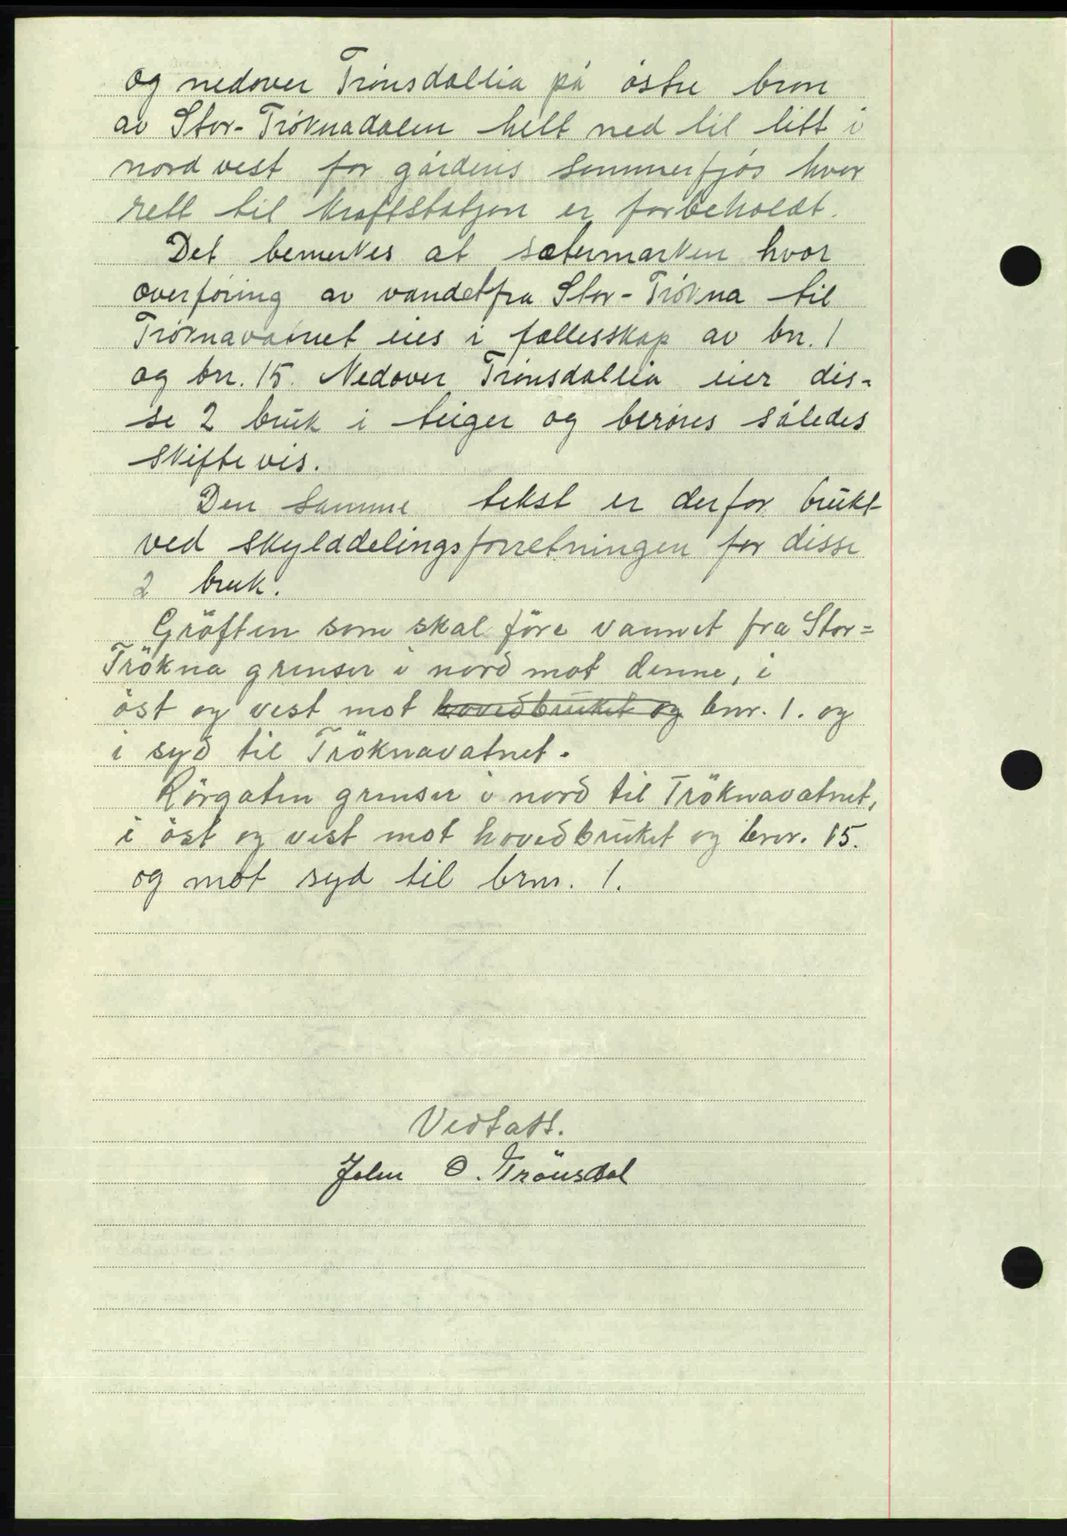 og nedover Trönsdallia på östre bron
av Stor-Tröknadalen helt ned til litt i
nord vest for gårdens sommerfjös hvor
rett til kraftstatjon er forbeholdt.
Det bemerkes at sætermarken hvor
overföring av vandet fra Stor-Trökna til
Tröknavannet eies i fællesskap av bn. 1
og bn. 15. Nedover Trönsdallia eier dis-
se 2 bruk i teiger og beröres således
skiftevis.
Den samme tekst er derfor brukt
ved skylddelingsforretningen for disse
2 bruk.
Gröften som skal före vannet fra Stor=
Trökna grenser i nord mot denne, i
öst og vest mot hovedbruket og bnr. 1. og
i syd til Tröknavatnet.
Rörgaten grenser i nord til Tröknavatnet,
i öst og vest mot hovedbruket og bnr. 15.
og mot syd til bnr. 1.
Vedtatt.
John O. Trönsdal